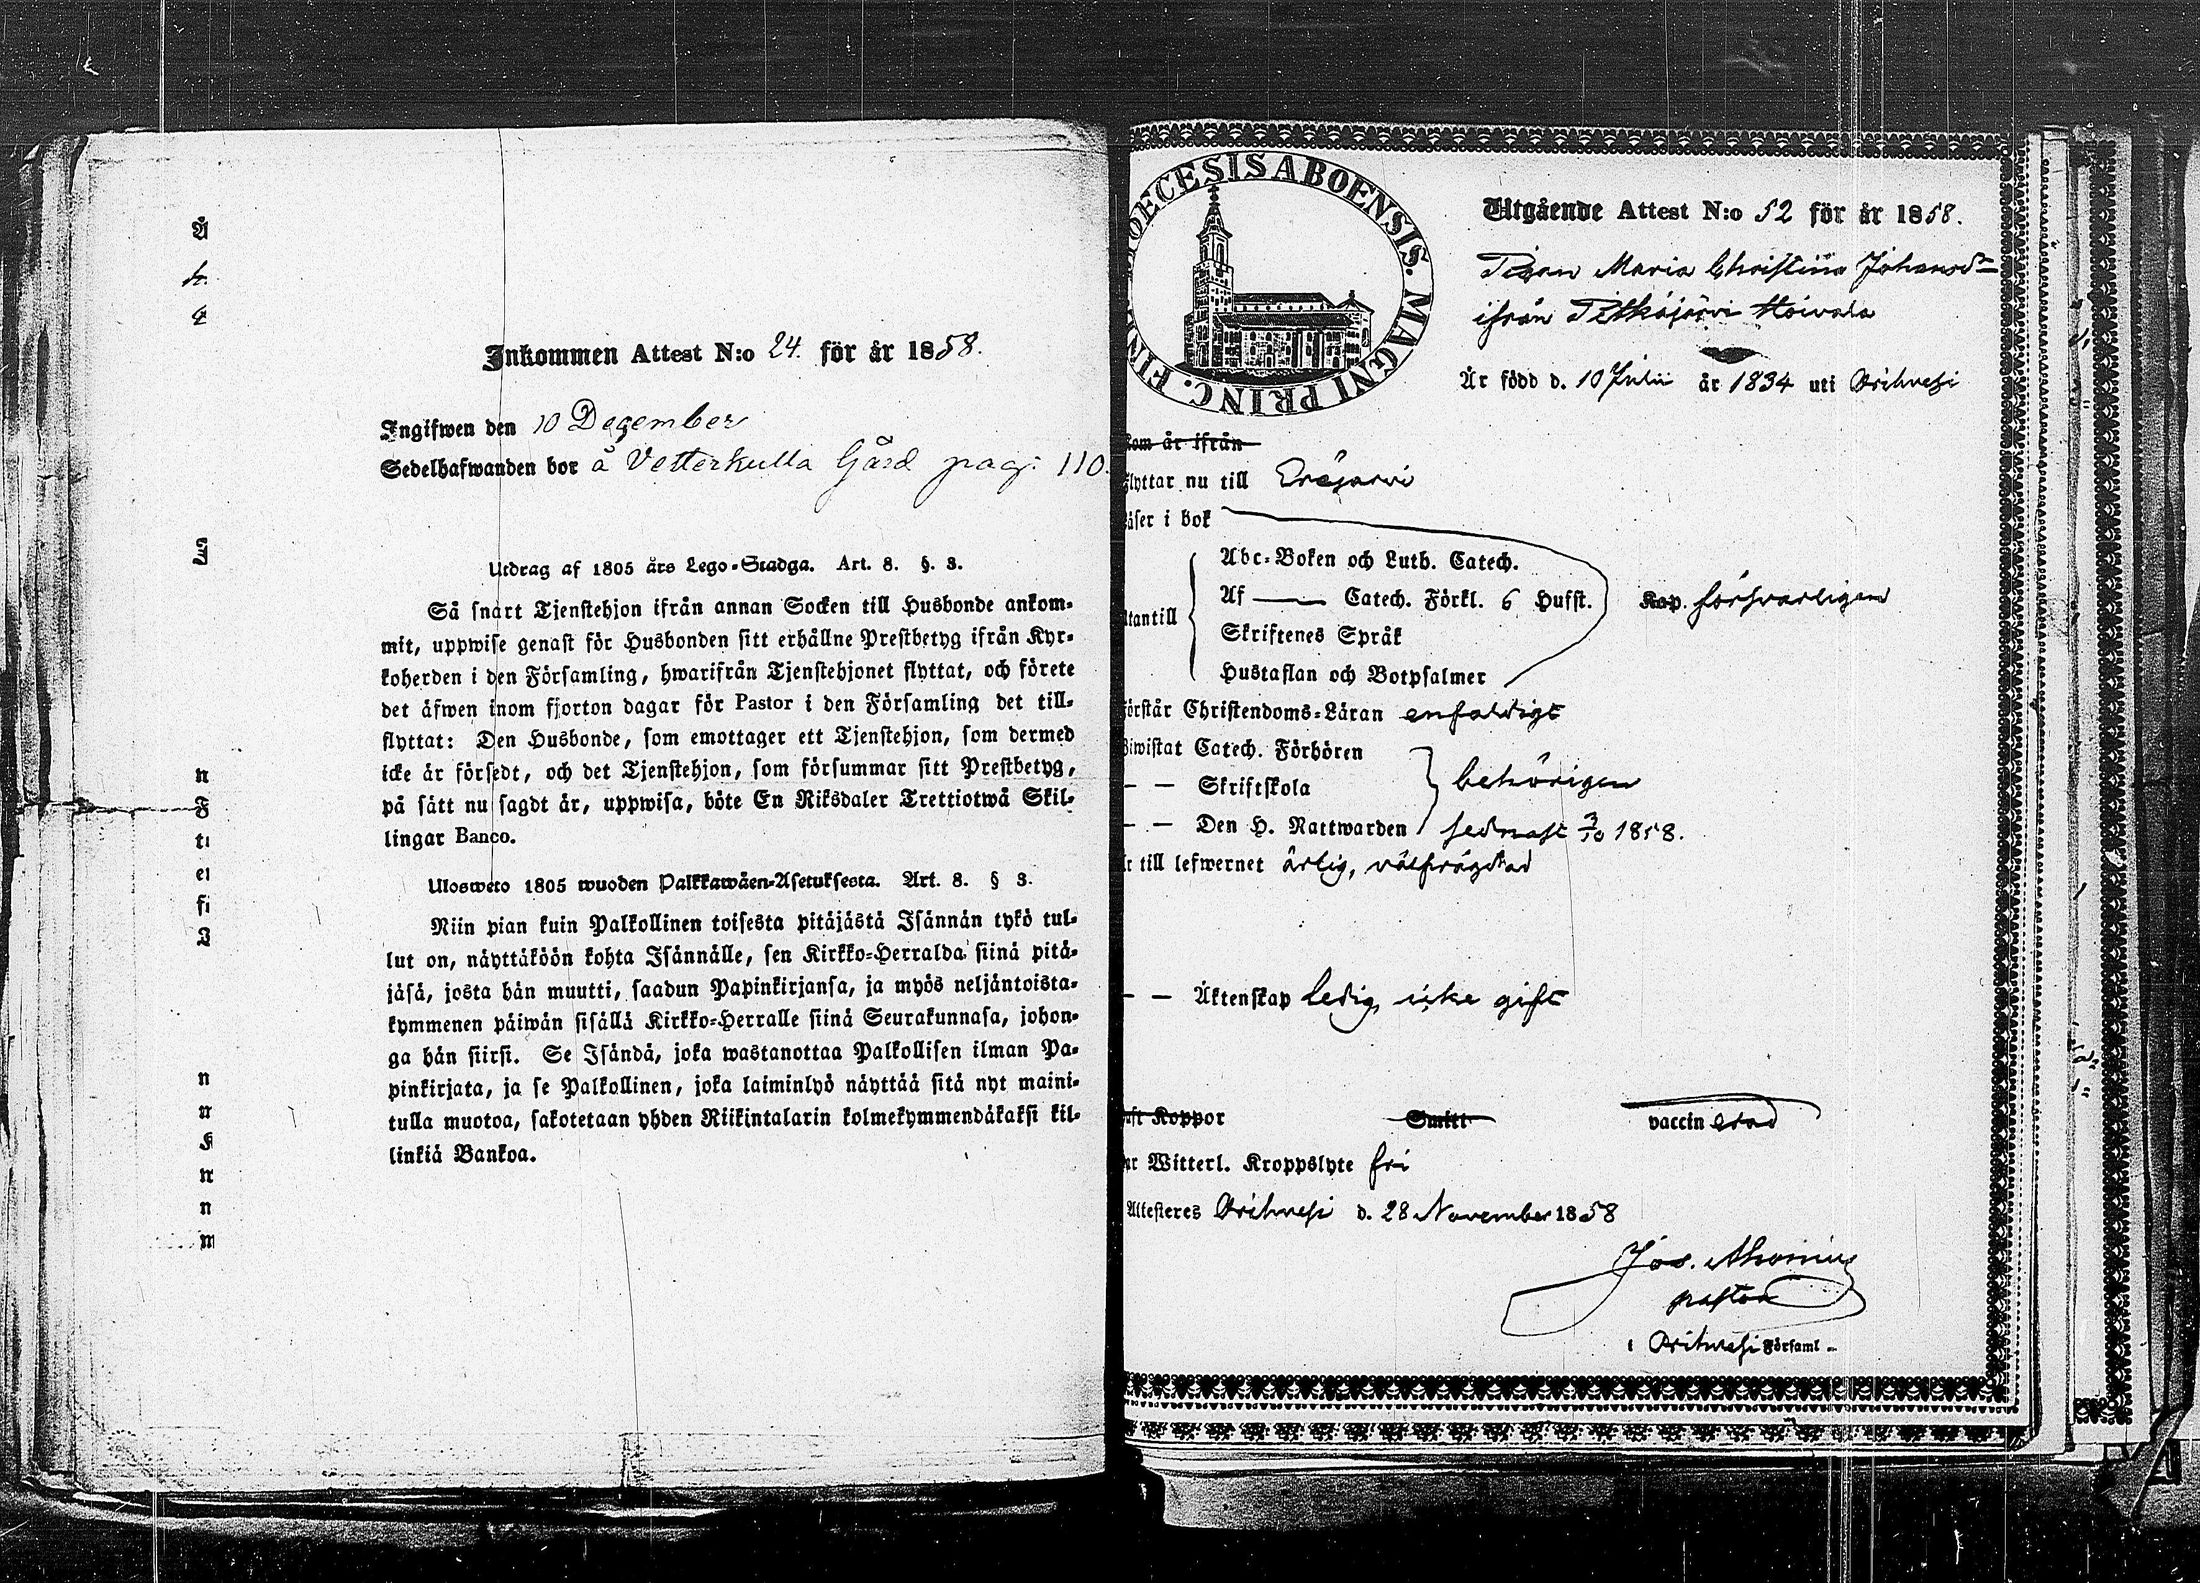 Inkommen Attest N:o 24. för år 1858.
Ingifwen den 10 December
Sedelhafwanden bor å Vetterkulla Gård pag: 110.
Utdrag af 1805 års Lego-Stadga. Art. 8. §. 3.
Så snart Tjenstehjon ifrån annan Socken till Husbonde ankom-
mit, uppwise genast för Husbonden sitt erhållne Prestbetyg ifrån Kyr-
koherden i den Församling, hwarifrån Tjenstehjonet flyttat, och förete
det äfwen inom fjorton dagar för Pastor i den Församling det till-
flyttat: Den Husbonde, som emottager ett Tjenstehjon, som dermed
icke är försedt, och det Tjenstehjon, som försummar sitt Prestbetyg,
på sätt nu sagdt är, uppwisa, böte En Riksdaler Trettiotwå Skil-
lingar Banco.
Ulosweto 1805 wuoden Palkkawäen-Asetuksesta. Art. 8. § 3.
Niin pian kuin Palkollinen toisesta pitäjästä Isännän tykö tul-
lut on, näyttäköön kohta Isännälle, sen Kirkko-Herralda siinä pitä-
jäsä, josta hän muutti, saadun Papinkirjansa, ja myös neljäntoista-
kymmenen päiwän sisällä Kirkko-Herralle siinä Seurakunnasa, johon-
ga hän siirsi. Se Isändä, joka wastanottaa Palkollisen ilman Pa-
pinkirjata, ja se Palkollinen, joka laiminlyö näyttää sitä nyt maini-
tulla muotoa, sakotetaan yhden Riikintalarin kolmekymmendäkaksi kil-
linkiä Bankoa.
DIOECESIS ABOENSIS. MAGNI PRINC. FIN
Utgående Attest N:o 52 för år 1858.
Pigan Maria Christina Johansdr
ifrån Pitkäjärvi Hoivala
Är född d. 10 Julii år 1834 uti Orihvesi
kom år ifrån
flyttar nu till Eräjärvi
läser i bok
Abc-Boken och Luth. Catech.
Af Catech. Förkl. 6 Hufst. Kap. försvarligen
utantill
Skriftenes Språk
Hustaflan och Botpsalmer
förstår Christendoms-Läran enfaldigt
Biwistat Catech. Förhören
— — Skriftskola behörigen
— — Den H. Nattwarden sednast 3/10 1858.
är till lefwernet ärlig, välfrägdad
— — Äktenskap ledig, icke gift
haft Koppor Smitt vaccinerad
har Witterl. Kroppslyte fri
Attesteres Orihvesi d. 28 November 1858
Jos.
pastor
i Orihvesi Församl